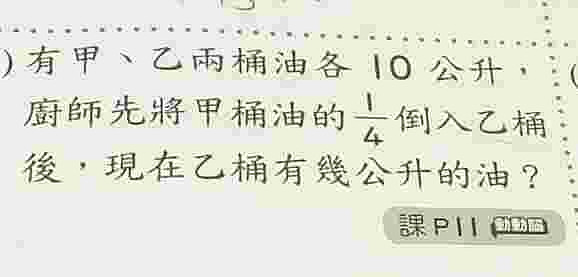 )有甲、乙兩桶油各10公升，(
廚師先將甲桶油的1/4倒入乙桶
後，現在乙桶有幾公升的油？
課P11 動動腦